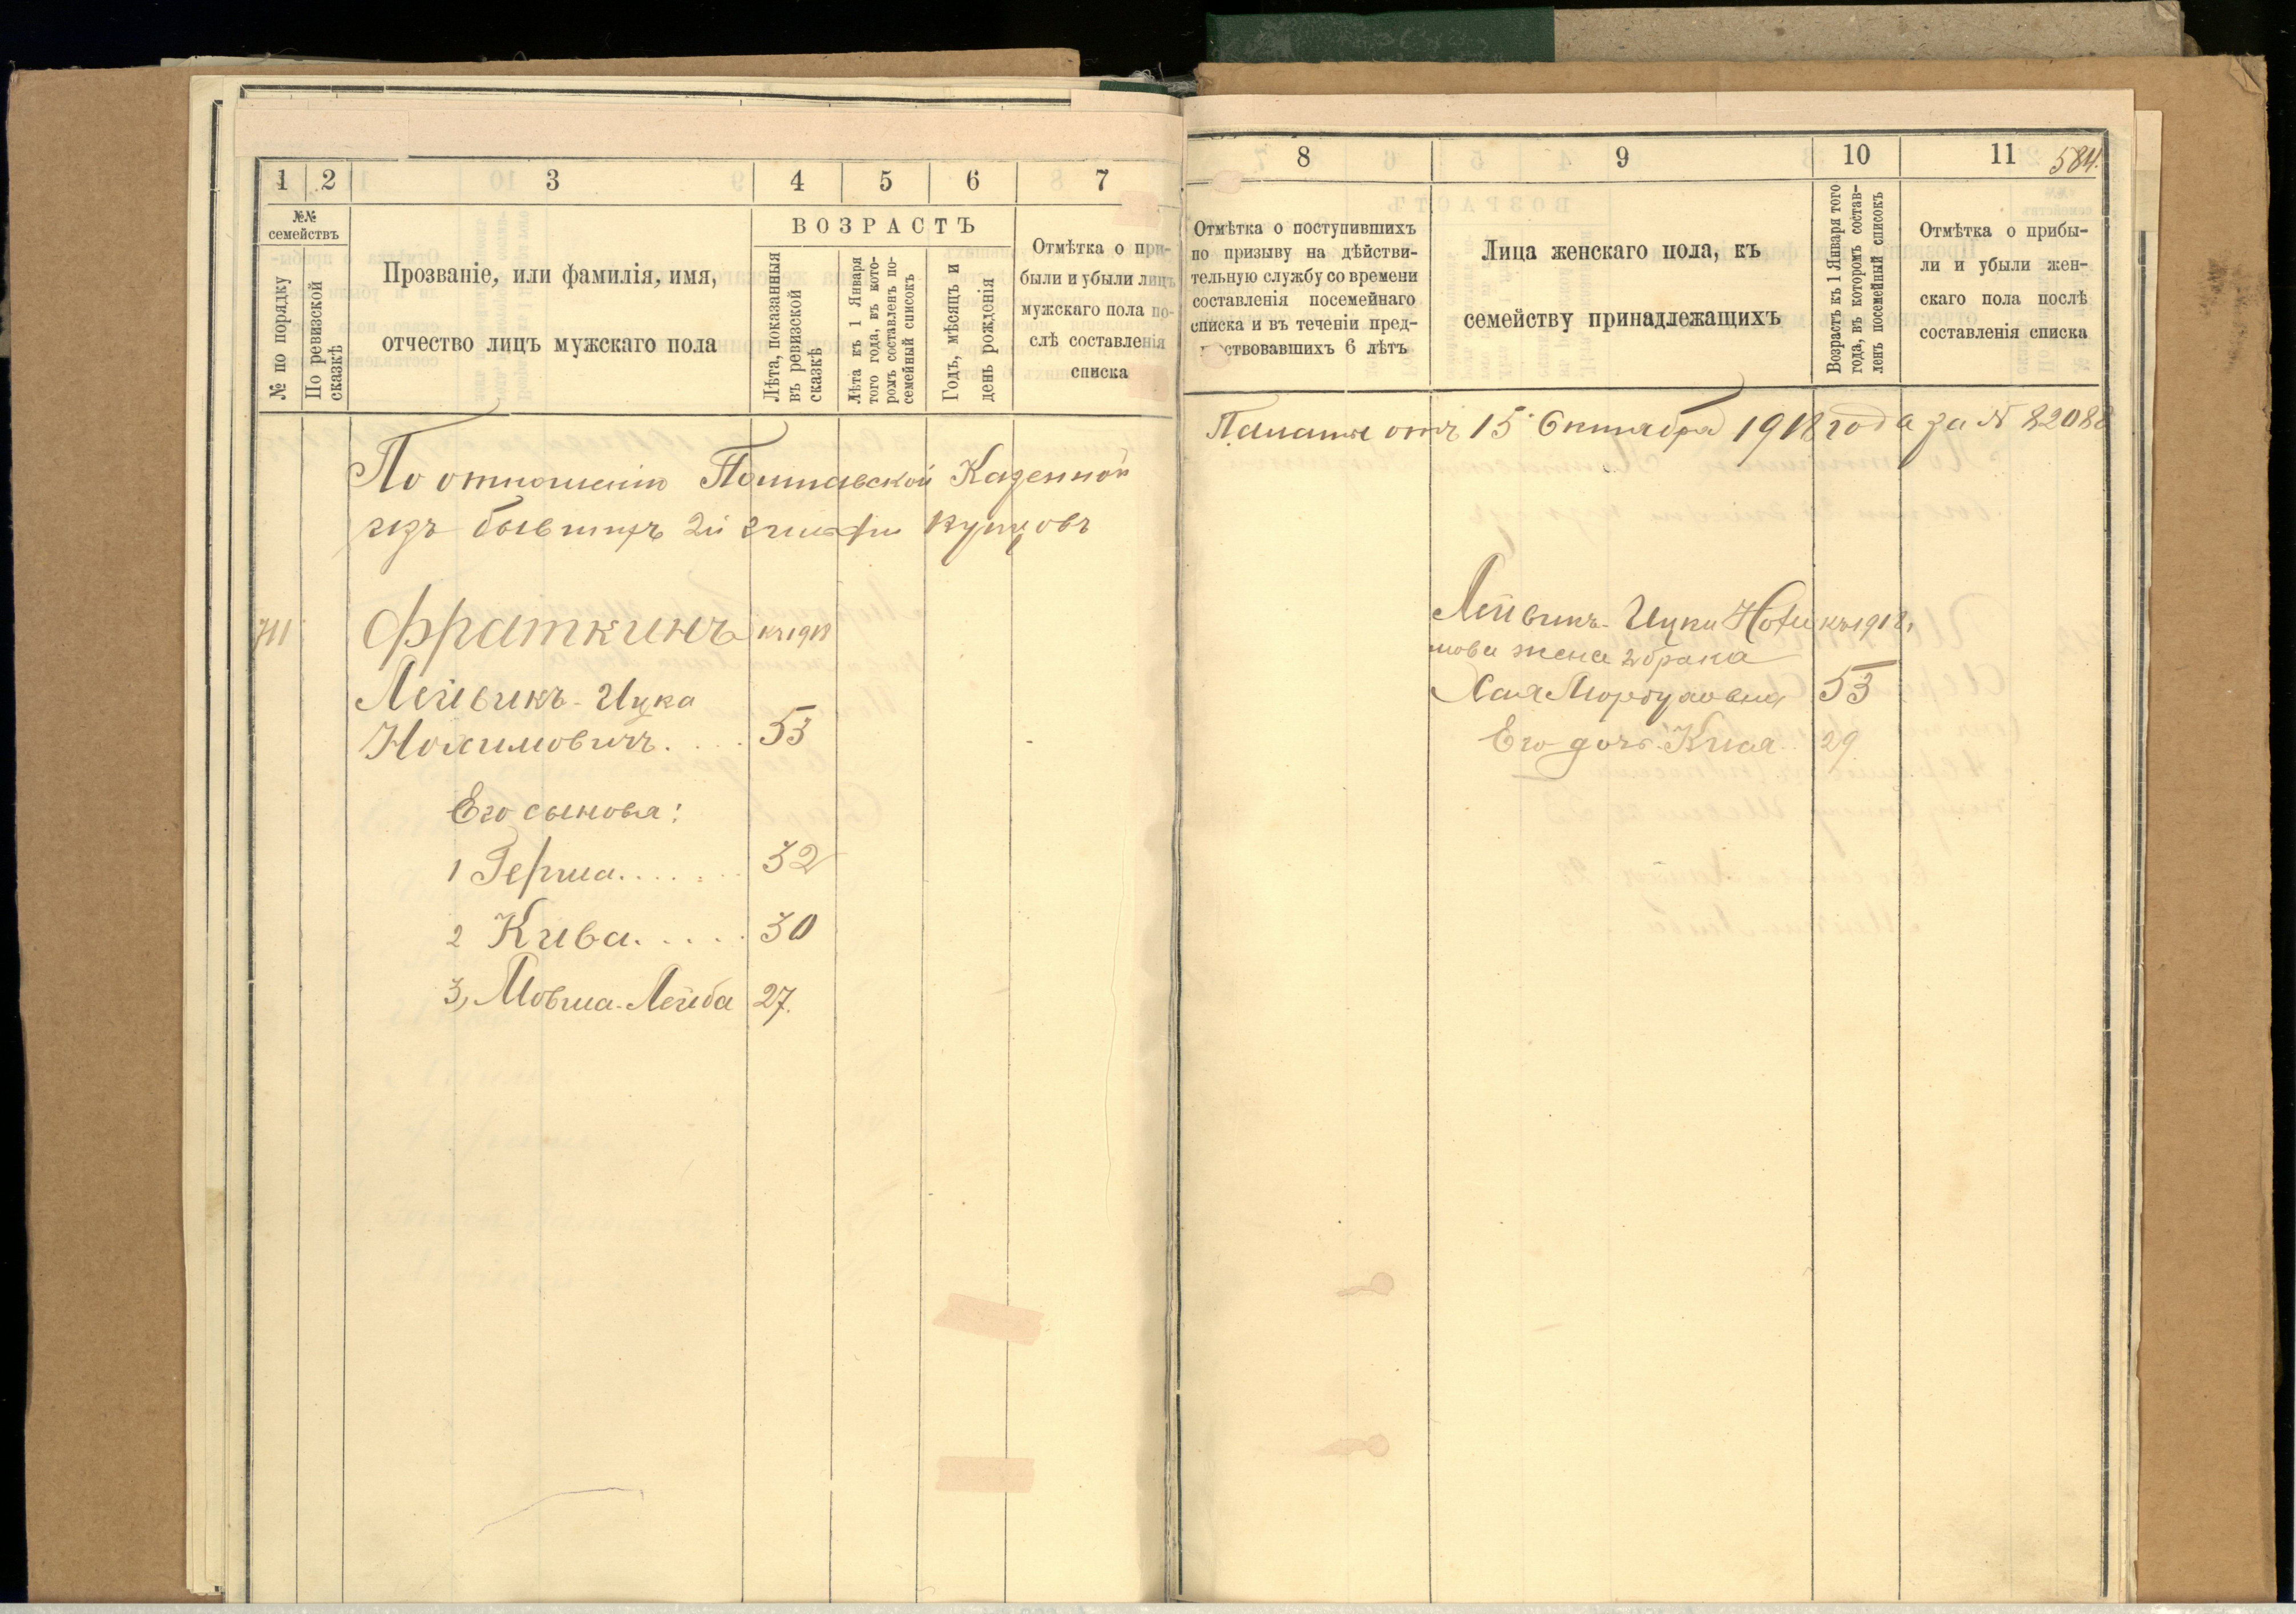 1 2 3 4 5 6 7
№№ семействъ
№ по порядку
По ревизской сказкѣ
Прозваніе, или фамилія, имя,
отчество лицъ мужскаго пола
ВОЗРАСТЪ
Лѣта, показанныя
въ ревизской
сказкѣ
Лѣта къ 1 Января
того года, въ кото-
ромъ составленъ по-
семейный списокъ
Годъ, мѣсяцъ и
день рожденія
Отмѣтка о при-
были и убыли лицъ
мужскаго пола по-
слѣ составленія
списка
По отношенію Полтавской Казенной
изъ бывшихъ 2й гильдіи купцовъ
711 Фраткинъ къ 1918
Лейвикъ-Ицка
Нохимовичъ.... 53
Его сыновья:
1 Герша....... 32
2 Кива..... 30
3, Мовша-Лейба 27.
8 9 10 11 584.
Отмѣтка о поступившихъ
по призыву на дѣйстви-
тельную службу со времени
составленія посемейнаго
списка и въ теченіи пред-
шествовавшихъ 6 лѣтъ
Лица женскаго пола, къ
семейству принадлежащихъ
Возрастъ къ 1 Января того
года, въ которомъ состав-
ленъ посемейный списокъ
Отмѣтка о прибы-
ли и убыли жен-
скаго пола послѣ
составленія списка
Палаты отъ 15 Октября 1918 года за N 82088
Лейвикъ-Ицки Нохи къ 1918,
мова жена 2 брака
Хая Мордуховна 53
Его дочь Киая.. 29